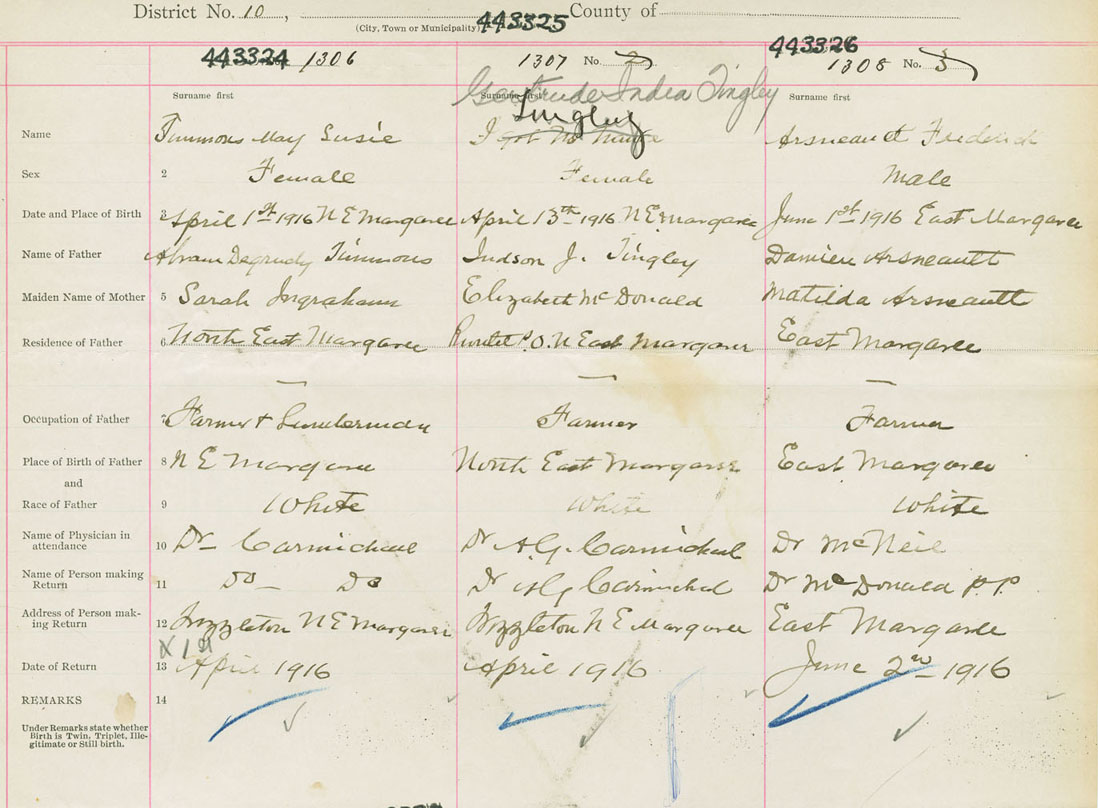 District No. 10, County of
(City, Town or Municipality)
443324 1306
443325 1307 No. 2
443326 1308 No. 3
Surname first Surname first Surname first
Gertrude India Tingley
Tingley
Name Timmons May Susie Arsneault Frederick
Sex 2 Female Female Male
Date and Place of Birth 3 April 1st 1916 N E Margaree April 13th 1916 N E Margaree June 1st 1916 East Margaree
Name of Father Abram Timmons Judson J. Tingley Damien Arsneault
Maiden Name of Mother 5 Sarah Ingraham Elizabeth McDonald Matilda Arsneault
Residence of Father 6 North East Margaree P.O. N East Margaree East Margaree
Occupation of Father 7 Farmer & Lumberman Farmer Farmer
Place of Birth of Father 8 N E Margaree North East Margaree East Margaree
and
Race of Father 9 White White White
Name of Physician in
attendance 10 Dr Carmichael Dr A.G. Carmichael Dr McNeil
Name of Person making
Return 11 Do Do Dr A G Carmichael Dr McDonald P.P.
Address of Person mak-
ing Return 12 Frizzleton N E Margaree Frizzleton N E Margaree East Margaree
Date of Return 13 April 1916 April 1916 June 2nd 1916
REMARKS 14
Under Remarks state whether
Birth is Twin, Triplet, Ille-
gitimate or Still birth.